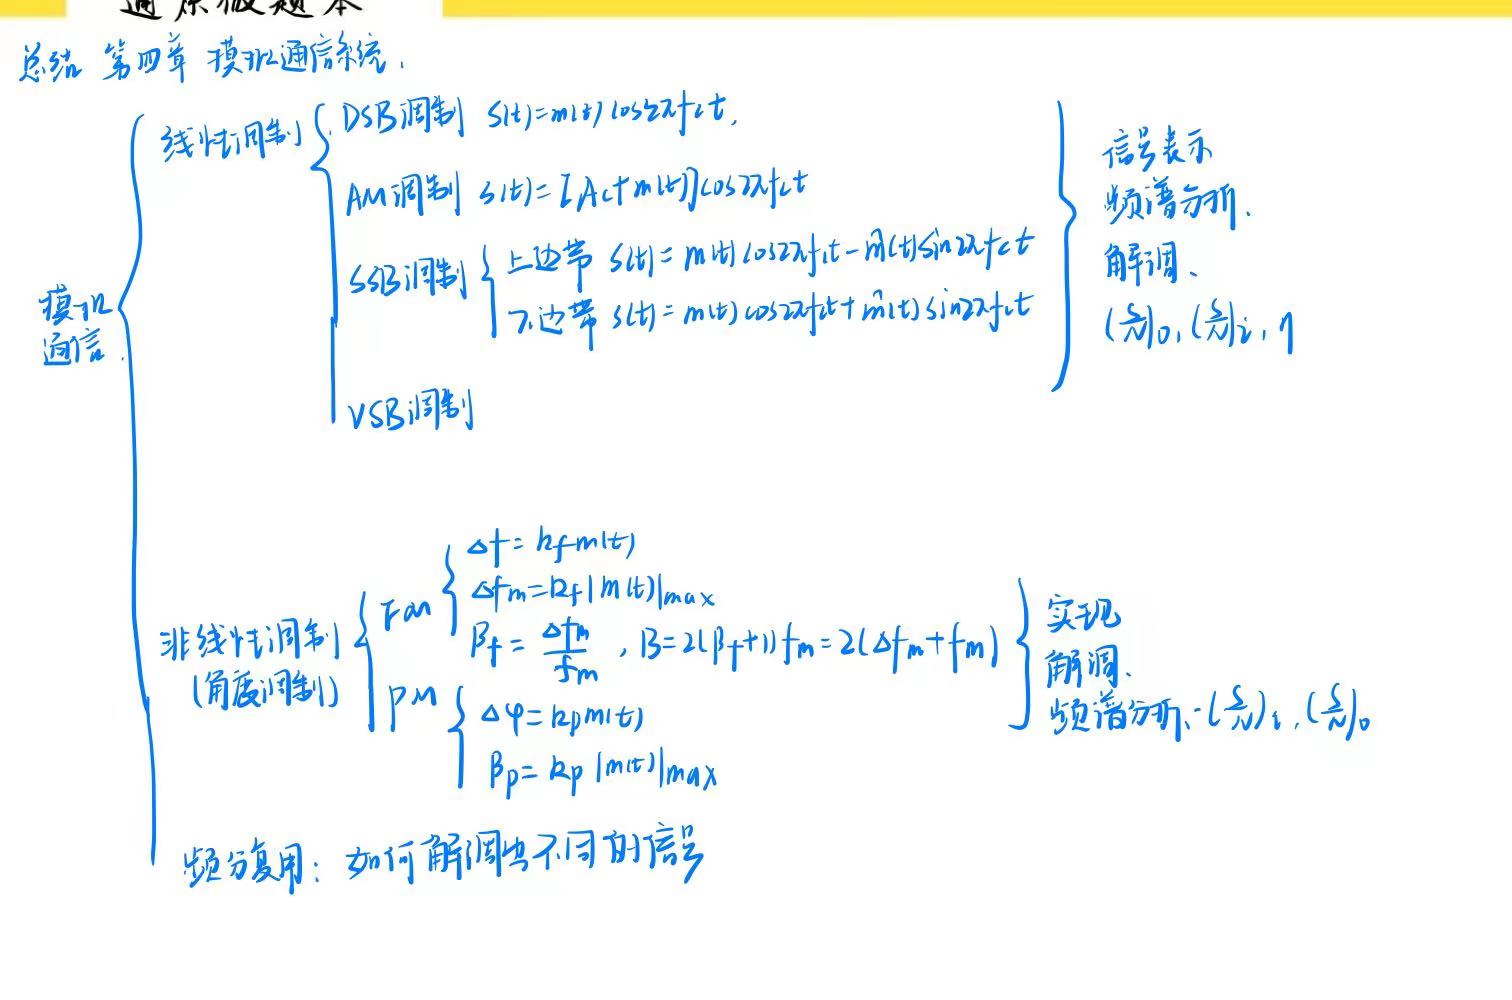 通原微题本
总结 第四章 模拟通信系统.
模拟通信.
线性调制
DSB调制 S(t)=m(t)cos2πfct,
AM调制 s(t)=[Ac+m(t)]cos2πfct
SSB调制
上边带 S(t)=m(t)cos2πfct-m̂(t)sin2πfct
下边带 s(t)=m(t)cos2πfct+m̂(t)sin2πfct
VSB调制
信号表示
频谱分析.
解调、
(S/N)o, (S/N)i, η
非线性调制
(角度调制)
FM
Δf=kfm(t)
Δfm=kf|m(t)|max
βf=Δfm/fm, B=2(βf+1)fm=2(Δfm+fm)
PM
Δφ=kpm(t)
βp=kp|m(t)|max
实现
解调.
频谱分析、(S/N)i, (S/N)o
频分复用: 如何解调出不同的信号